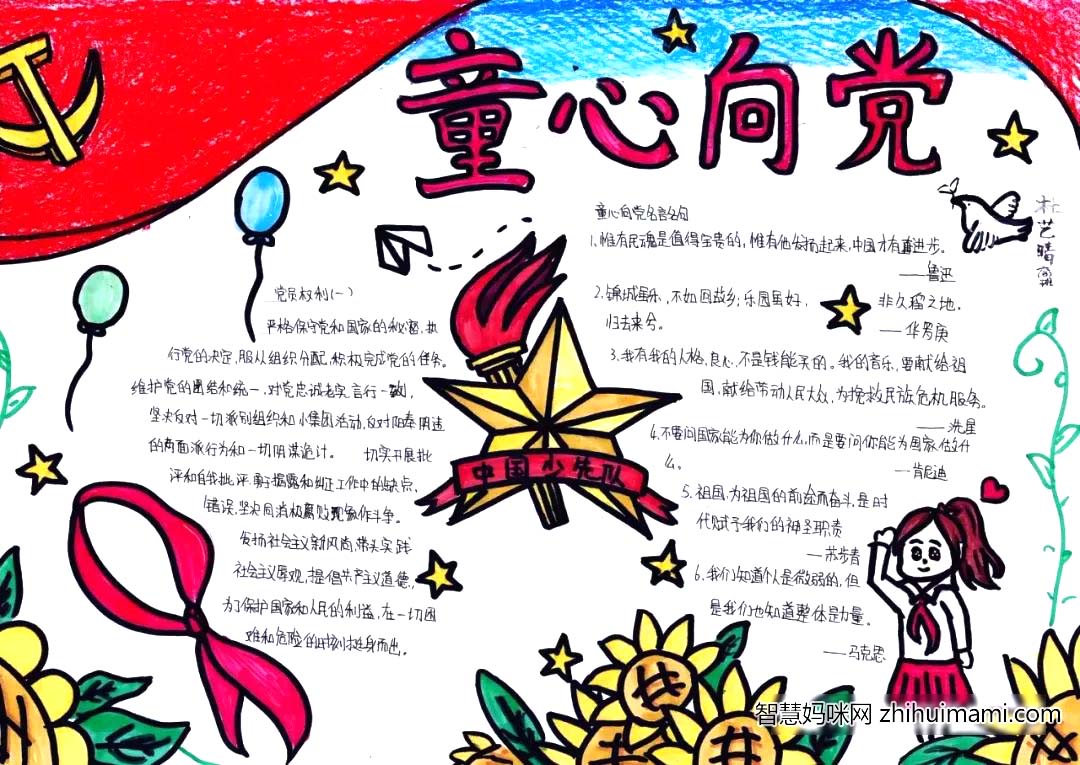 童心向党
童心向党名言名句
1.惟有民魂是值得宝贵的,惟有他发扬起来,中国才有真进步。
——鲁迅
2.锦城虽乐,不如回故乡;乐园虽好,非久留之地。
归去来兮。
——华罗庚
3.我有我的人格、良心,不是钱能买的。我的音乐,要献给祖
国,献给劳动人民大众,为挽救民族危机服务。
——冼星
4.不要问国家能为你做什么,而是要问你能为国家做什
么。
——肯尼迪
5.祖国,为祖国的前途而奋斗,是时
代赋予我们的神圣职责
——苏步青
6.我们知道个人是微弱的,但
是我们也知道整体是力量。
——马克思
党员权利(一)
严格保守党和国家的秘密,执
行党的决定,服从组织分配,积极完成党的任务。
维护党的团结和统一,对党忠诚老实,言行一致,
坚决反对一切派别组织和小集团活动,反对阳奉阴违
的两面派行为和一切阴谋诡计。 切实开展批
评和自我批评,勇于揭露和纠正工作中的缺点、
错误,坚决同消极腐败现象作斗争。
发扬社会主义新风尚,带头实践
社会主义荣辱观,提倡共产主义道德,
为了保护国家和人民的利益,在一切困
难和危险的时刻挺身而出。
中国少先队
艺晴
智慧妈咪网 zhihuimami.com